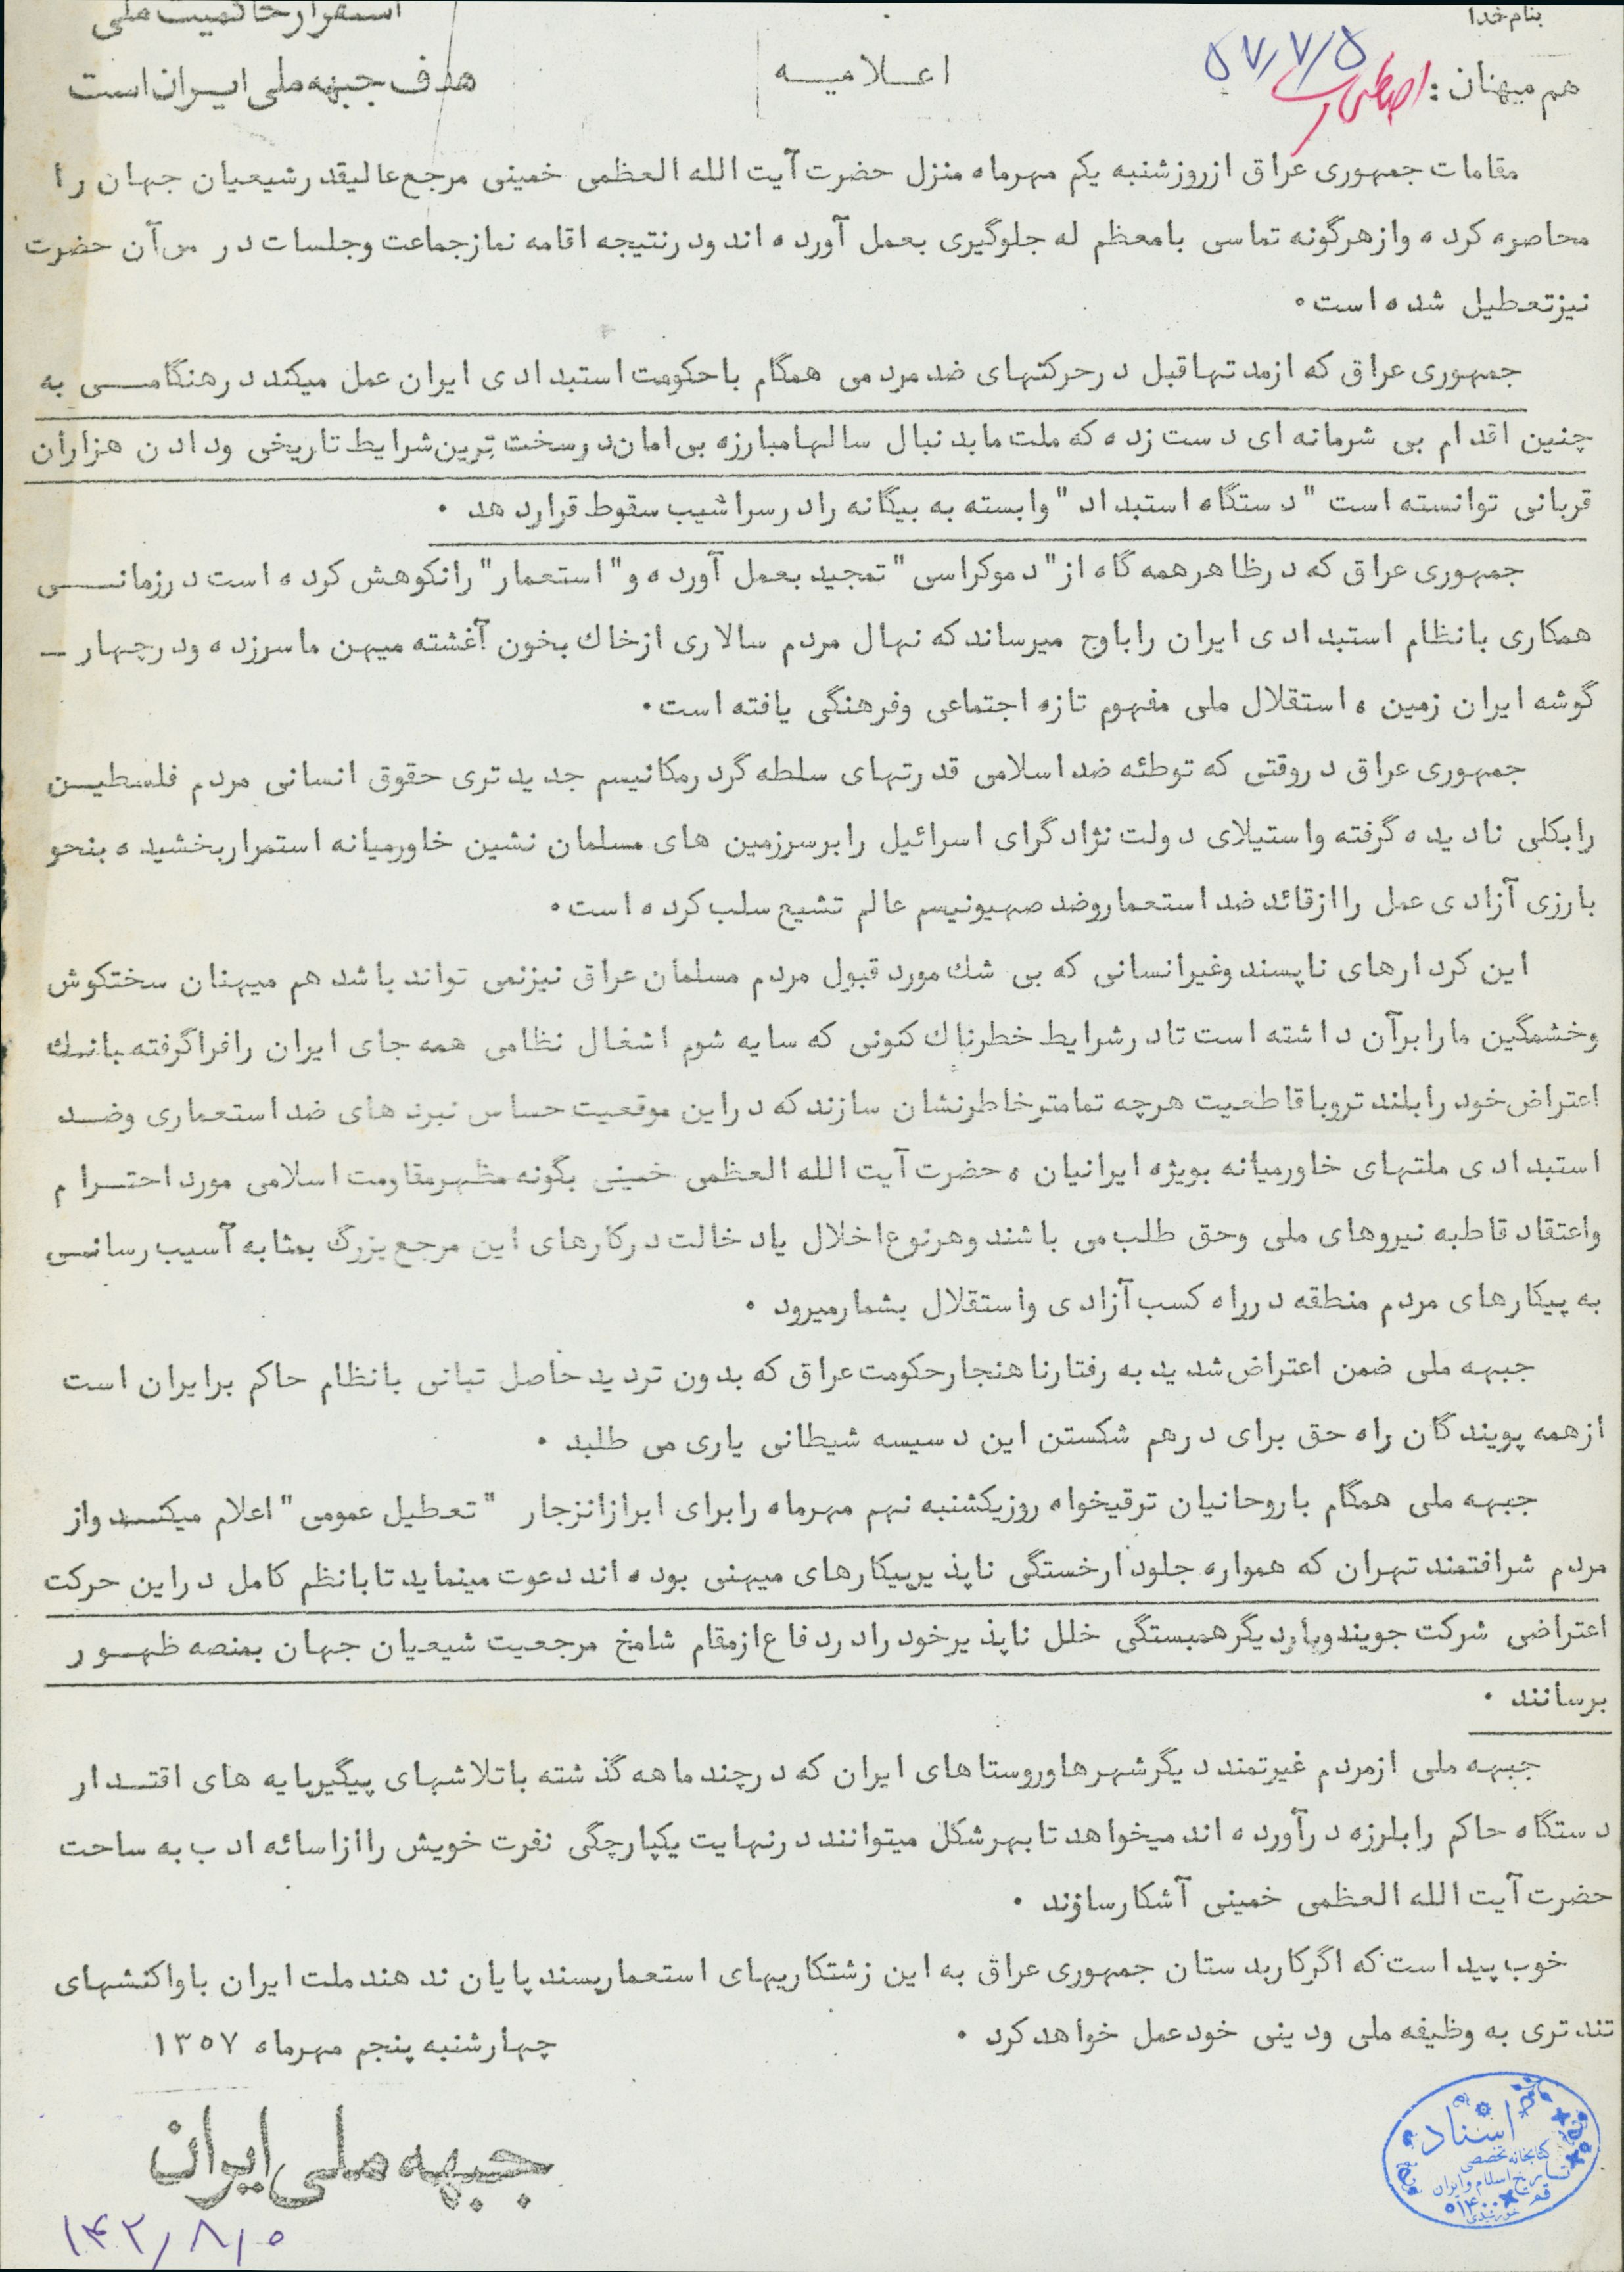 بنام خدا
استقرار حاکمیت ملی
هدف جبهه ملی ایران است
اعلامیه
هم میهنان :
۵۷/۷/۵
مقامات جمهوری عراق از روز شنبه یکم مهرماه منزل حضرت آیت الله العظمی خمینی مرجع عالیقدر شیعیان جهان را
محاصره کرده و از هرگونه تماسی با معظم له جلوگیری بعمل آورده اند و در نتیجه اقامه نماز جماعت و جلسات درس آن حضرت
نیز تعطیل شده است .
جمهوری عراق که از مدتها قبل در حرکتهای ضد مردمی همگام با حکومت استبدادی ایران عمل میکند در هنگامی به
چنین اقدام بی شرمانه ای دست زده که ملت ما بدنبال سالها مبارزه بی امان در سخت ترین شرایط تاریخی و دادن هزاران
قربانی توانسته است "دستگاه استبداد" وابسته به بیگانه را در سراشیب سقوط قرار دهد .
جمهوری عراق که در ظاهر همه گاه از "دموکراسی" تمجید بعمل آورده و "استعمار" را نکوهش کرده است در زمانی
همکاری با نظام استبدادی ایران را باوج میرساند که نهال مردم سالاری از خاک بخون آغشته میهن ما سر زده و در چهار -
گوشه ایران زمین ، استقلال ملی مفهوم تازه اجتماعی و فرهنگی یافته است .
جمهوری عراق در وقتی که توطئه ضد اسلامی قدرتهای سلطه گر در مکانیسم جدیدتری حقوق انسانی مردم فلسطین
را بکلی نادیده گرفته و استیلای دولت نژادگرای اسرائیل را بر سرزمین های مسلمان نشین خاورمیانه استمرار بخشیده بنحو
بارزی آزادی عمل را از قائد ضد استعمار و ضد صهیونیسم عالم تشیع سلب کرده است .
این کردارهای ناپسند و غیرانسانی که بی شک مورد قبول مردم مسلمان عراق نیز نمی تواند باشد هم میهنان سختکوش
و خشمگین ما را بر آن داشته است تا در شرایط خطرناک کنونی که سایه شوم اشغال نظامی همه جای ایران را فرا گرفته بانک
اعتراض خود را بلندتر و با قاطعیت هرچه تمامتر خاطرنشان سازند که در این موقعیت حساس نبردهای ضد استعماری و ضد
استبدادی ملتهای خاورمیانه بویژه ایرانیان ، حضرت آیت الله العظمی خمینی بگونه مظهر مقاومت اسلامی مورد احترام
و اعتقاد قاطبه نیروهای ملی و حق طلب می باشند و هرنوع اخلال یا دخالت در کارهای این مرجع بزرگ بمثابه آسیب رسانی
به پیکارهای مردم منطقه در راه کسب آزادی و استقلال بشمار میرود .
جبهه ملی ضمن اعتراض شدید به رفتار ناهنجار حکومت عراق که بدون تردید حاصل تبانی با نظام حاکم بر ایران است
از همه پویندگان راه حق برای درهم شکستن این دسیسه شیطانی یاری می طلبد .
جبهه ملی همگام با روحانیان ترقیخواه روز یکشنبه نهم مهرماه را برای ابراز انزجار "تعطیل عمومی" اعلام میکند و از
مردم شرافتمند تهران که همواره جلودار خستگی ناپذیر پیکارهای میهنی بوده اند دعوت مینماید تا با نظم کامل در این حرکت
اعتراضی شرکت جویند و بار دیگر همبستگی خلل ناپذیر خود را در دفاع از مقام شامخ مرجعیت شیعیان جهان بمنصه ظهور
برسانند .
جبهه ملی از مردم غیرتمند دیگر شهرها و روستاهای ایران که در چند ماهه گذشته با تلاشهای پیگیر پایه های اقتدار
دستگاه حاکم را بلرزه در آورده اند میخواهد تا بهر شکل میتوانند در نهایت یکپارچگی نفرت خویش را از اسائه ادب به ساحت
حضرت آیت الله العظمی خمینی آشکار سازند .
خوب پیداست که اگر کاربدستان جمهوری عراق به این زشتکاریهای استعمار پسند پایان ندهند ملت ایران با واکنشهای
تندتری به وظیفه ملی و دینی خود عمل خواهد کرد .
چهارشنبه پنجم مهرماه ۱۳۵۷
جبهه ملی ایران
اسناد
کتابخانه تخصصی
تاریخ اسلام و ایران
قم
۱۴۲/۸/۵